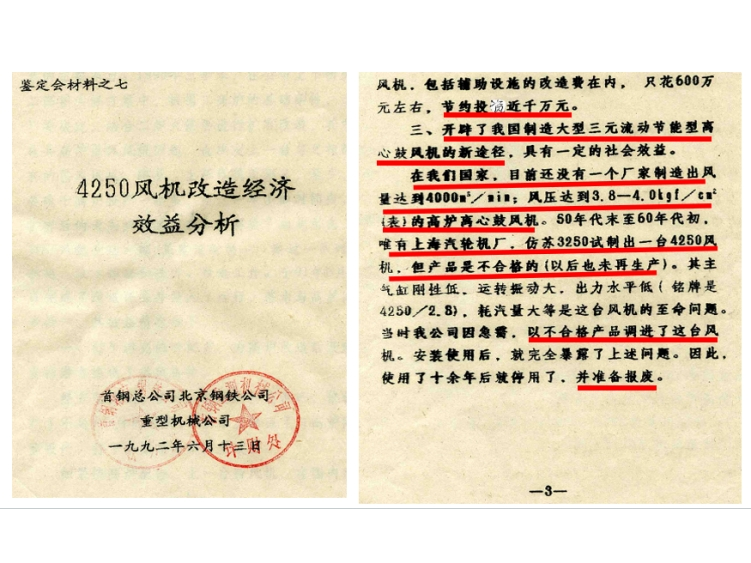 鉴定会材料之七
4250风机改造经济
效益分析
首钢总公司北京钢铁公司
重型机械公司
一九九二年六月十三日
计财处
风机,包括辅助设施的改造费在内, 只花600万
元左右,节约投资近千万元。
三、开辟了我国制造大型三元流动节能型离
心鼓风机的新途径,具有一定的社会效益。
在我们国家,目前还没有一个厂家制造出风
量达到4000m³/min;风压达到3.8—4.0kgf/cm²
(表)的高炉离心鼓风机。50年代末至60年代初,
唯有上海汽轮机厂,仿苏3250试制出一台4250风
机,但产品是不合格的(以后也未再生产)。其主
气缸刚性低,运转振动大,出力水平低(铭牌是
4250/2.8),耗汽量大等是这台风机的至命问题。
当时我公司因急需,以不合格产品调进了这台风
机。安装使用后,就完全暴露了上述问题。因此,
使用了十余年后就停用了,并准备报废。
—3—